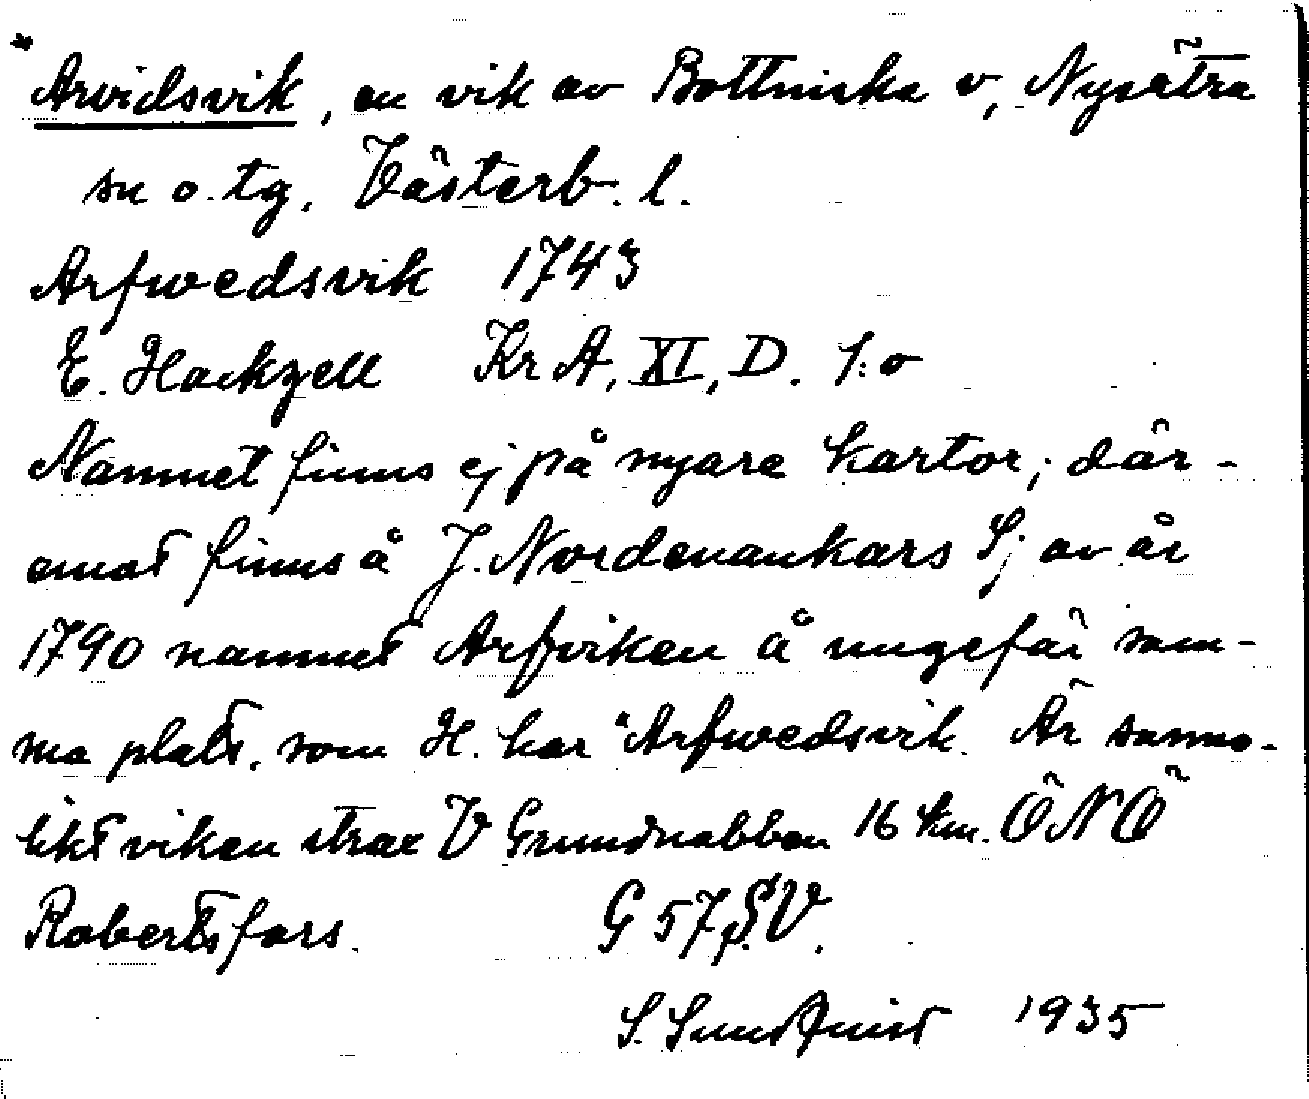 * Arvidsvik, en vik av Bottniska v, Nysätra
sn o. tg. Västerb. l.
Arfwedsvik 1743
E. Hackzell Kr A, XI, D. 1:o
Namnet finns ej på nyare kartor; där-
emot finns å J. Nordenankars Sj av år
1790 namnet Arfviken å ungefär sam-
ma plats. som H. har "Arfwedsvik. Är sanno-
likt viken strax V Grundnabben 16 km. ÖNÖ
Robertsfors. G 57, SV.
S. Sundqvist 1935